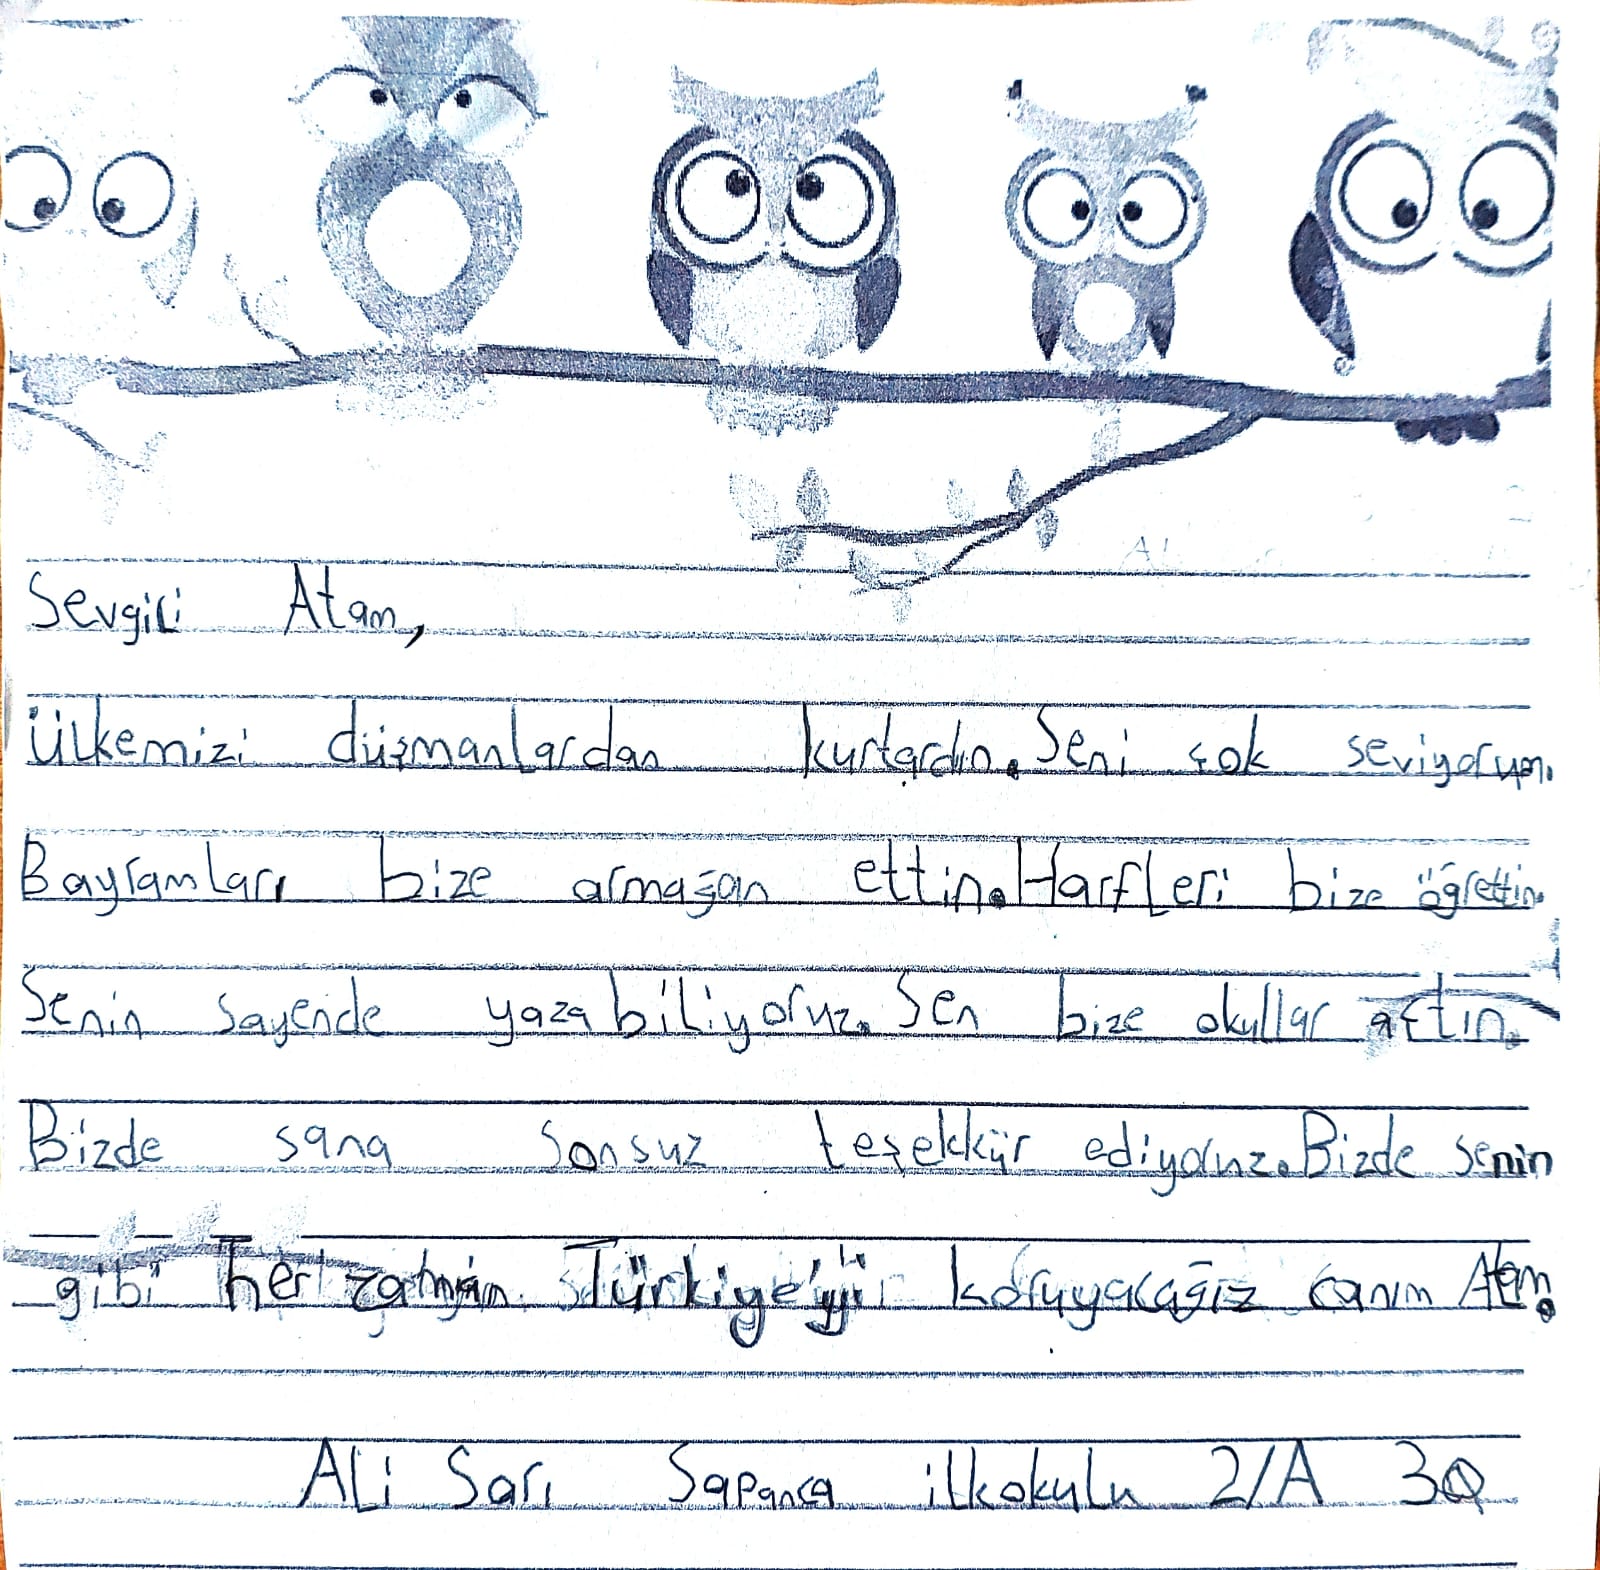 Sevgili Atam,
ülkemizi düşmanlardan kurtardın. Seni çok seviyorum.
Bayramları bize armağan ettin. Harfleri bize öğrettin.
Senin sayende yazabiliyoruz. Sen bize okullar açtın.
Bizde sana sonsuz teşekkür ediyoruz. Bizde senin
gibi her zaman Türkiye'yi koruyacağız canım Atam.
Ali Sarı Sapanca ilkokulu 2/A 30